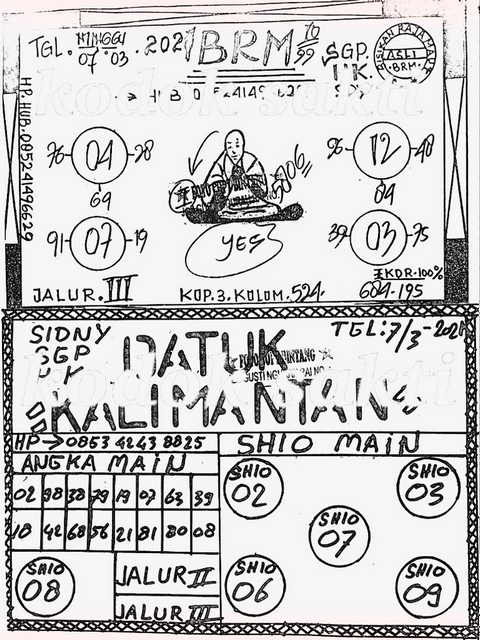 TGL. MINGGU
07.03. 2021
BRM 10/99
SGP.
BISIKAN RAJA MATUK
ASLI
BRM.
HP.HUB.085241496629
76 04 28
69
91 07 19
12
04
03
YES
5006
JALUR.III
KOP.3.KOLOM.524.
EKOR.100%
684.195
SIDNY
SGP
DATUK
KALIMANTAN
TEL:7/3-2021
HP→0853 4243 8825
SHIO MAIN
ANGKA MAIN
02 98 38 79 19 07 63 39
18 42 68 56 21 81 80 08
SHIO
02
SHIO
03
SHIO
07
SHIO
06
SHIO
09
SHIO
08
JALUR II
JALUR III
kodok sakti
kodok sakti